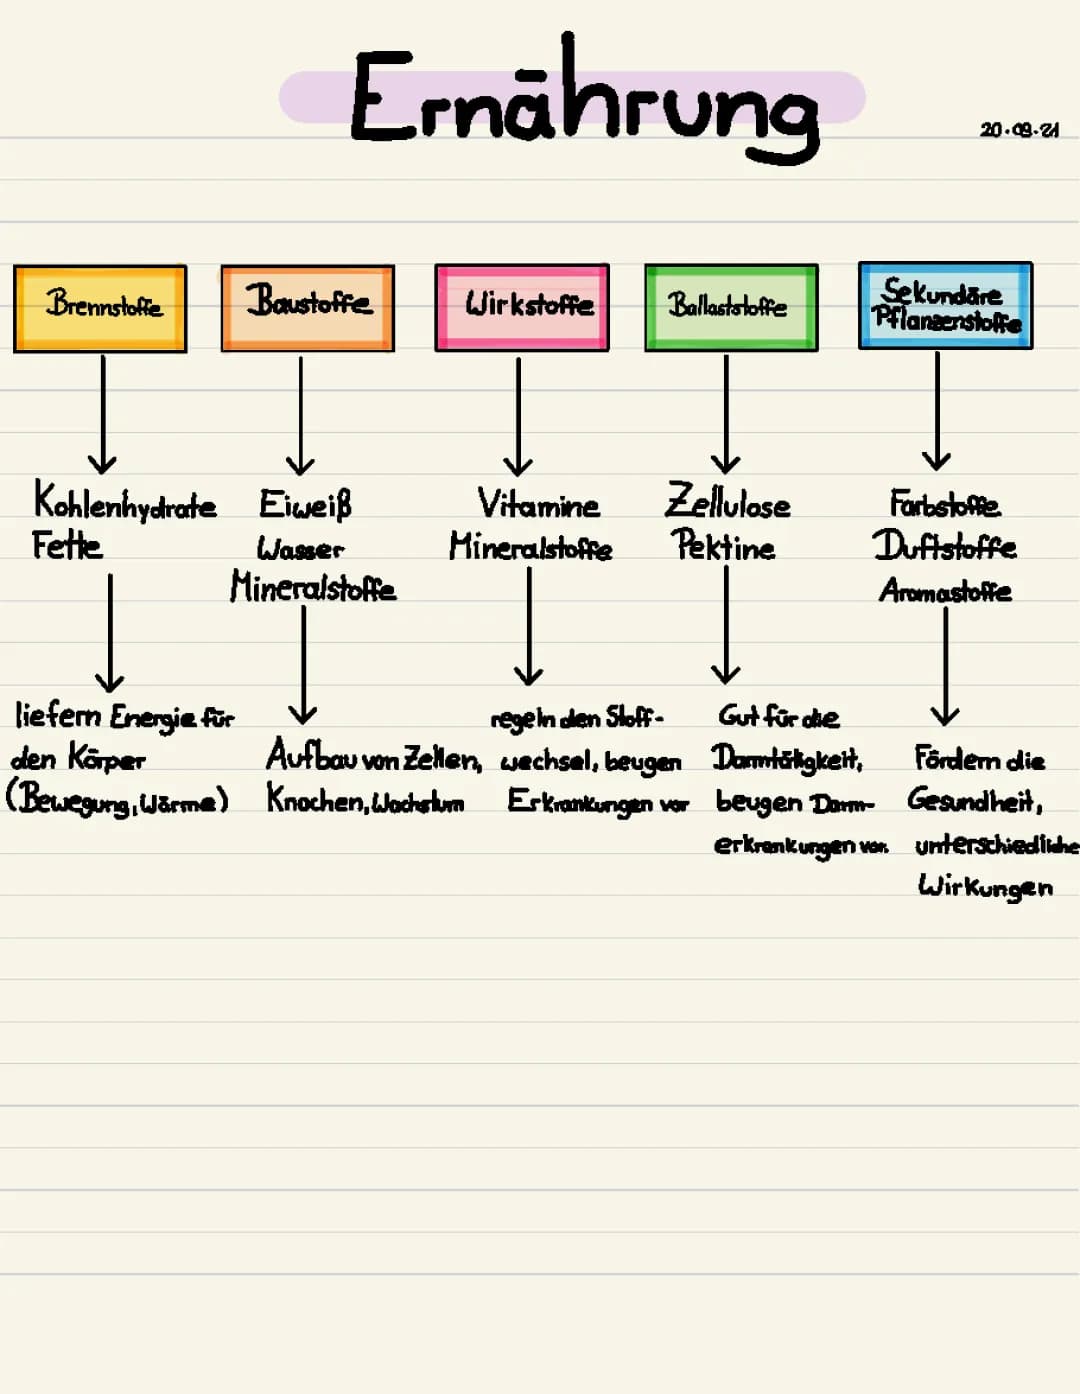 Ernährung
20.09.21
Brennstoffe
Kohlenhydrate
Fette
liefern Energie für
den Körper
(Bewegung, Wärme)
Baustoffe
Eiweiß
Wasser
Mineralstoffe
Aufbau von Zellen,
Knochen, Wachstum
Wirkstoffe
Vitamine
Mineralstoffe
regeln den Stoff-
wechsel, beugen
Erkrankungen vor
Ballaststoffe
Zellulose
Pektine
Gut für die
Darmtätigkeit,
beugen Darm-
erkrankungen vor.
Sekundäre
Pflanzenstoffe
Farbstoffe
Duftstoffe
Aromastoffe
Fördern die
Gesundheit,
unterschiedliche
Wirkungen